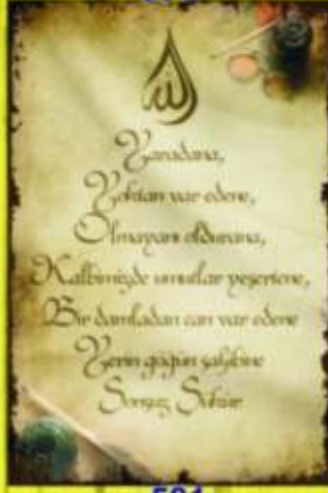 الله
Yaradana,
Yoktan var edene,
Olmayanı oldurana,
Kalbimizde umutlar yeşertene,
Bir damladan can var edene
Yerin göğün sahibine
Sonsuz Şükür